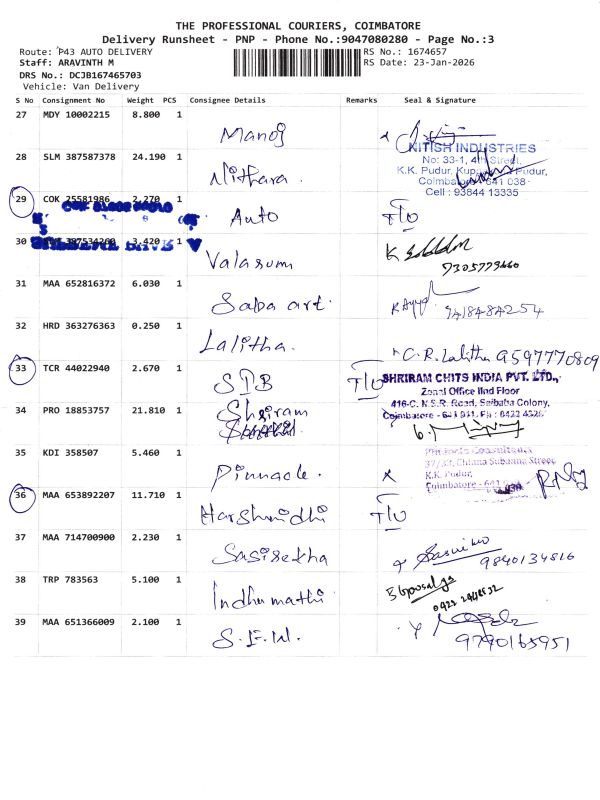 THE PROFESSIONAL COURIERS, COIMBATORE
Delivery Runsheet - PNP - Phone No.:9047080280 - Page No.:3
Route: P43 AUTO DELIVERY RS No.: 1674657
Staff: ARAVINTH M RS Date: 23-Jan-2026
DRS No.: DCJB167465703
Vehicle: Van Delivery
S No Consignment No Weight PCS Consignee Details Remarks Seal & Signature
27 MDY 10002215 8.800 1 Manoj
NITISH INDUSTRIES
No: 33-1, 4th Street,
K.K. Pudur, Pudur,
Coimbatore - 641 038
Cell : 93844 13335
28 SLM 387587378 24.190 1 Nithara.
29 COK 25581986 2.270 1 Auto
30 387534260 3.420 1 Valarum
7305779660
31 MAA 652816372 6.030 1 Saba art.
9418484254
32 HRD 363276363 0.250 1 Lalitha.
C.R. Lalitha 9597770809
33 TCR 44022940 2.670 1 SIB
SHRIRAM CHITS INDIA PVT. LTD.,
Zonal Office IInd Floor
416-C, N.S.R. Road, Saibaba Colony,
Coimbatore - 641 011. Ph : 0422 4326
34 PRO 18853757 21.810 1 Shriram
35 KDI 358507 5.460 1 Pinnacle.
Consultancy
37/33, Chinna Subanna Street,
K.K. Pudur,
Coimbatore - 641
36 MAA 653892207 11.710 1 Harshnidhi
37 MAA 714700900 2.230 1 Sasirekha
9840134816
38 TRP 783563 5.100 1 Indhumathi
39 MAA 651366009 2.100 1 S.E.W.
9790165951